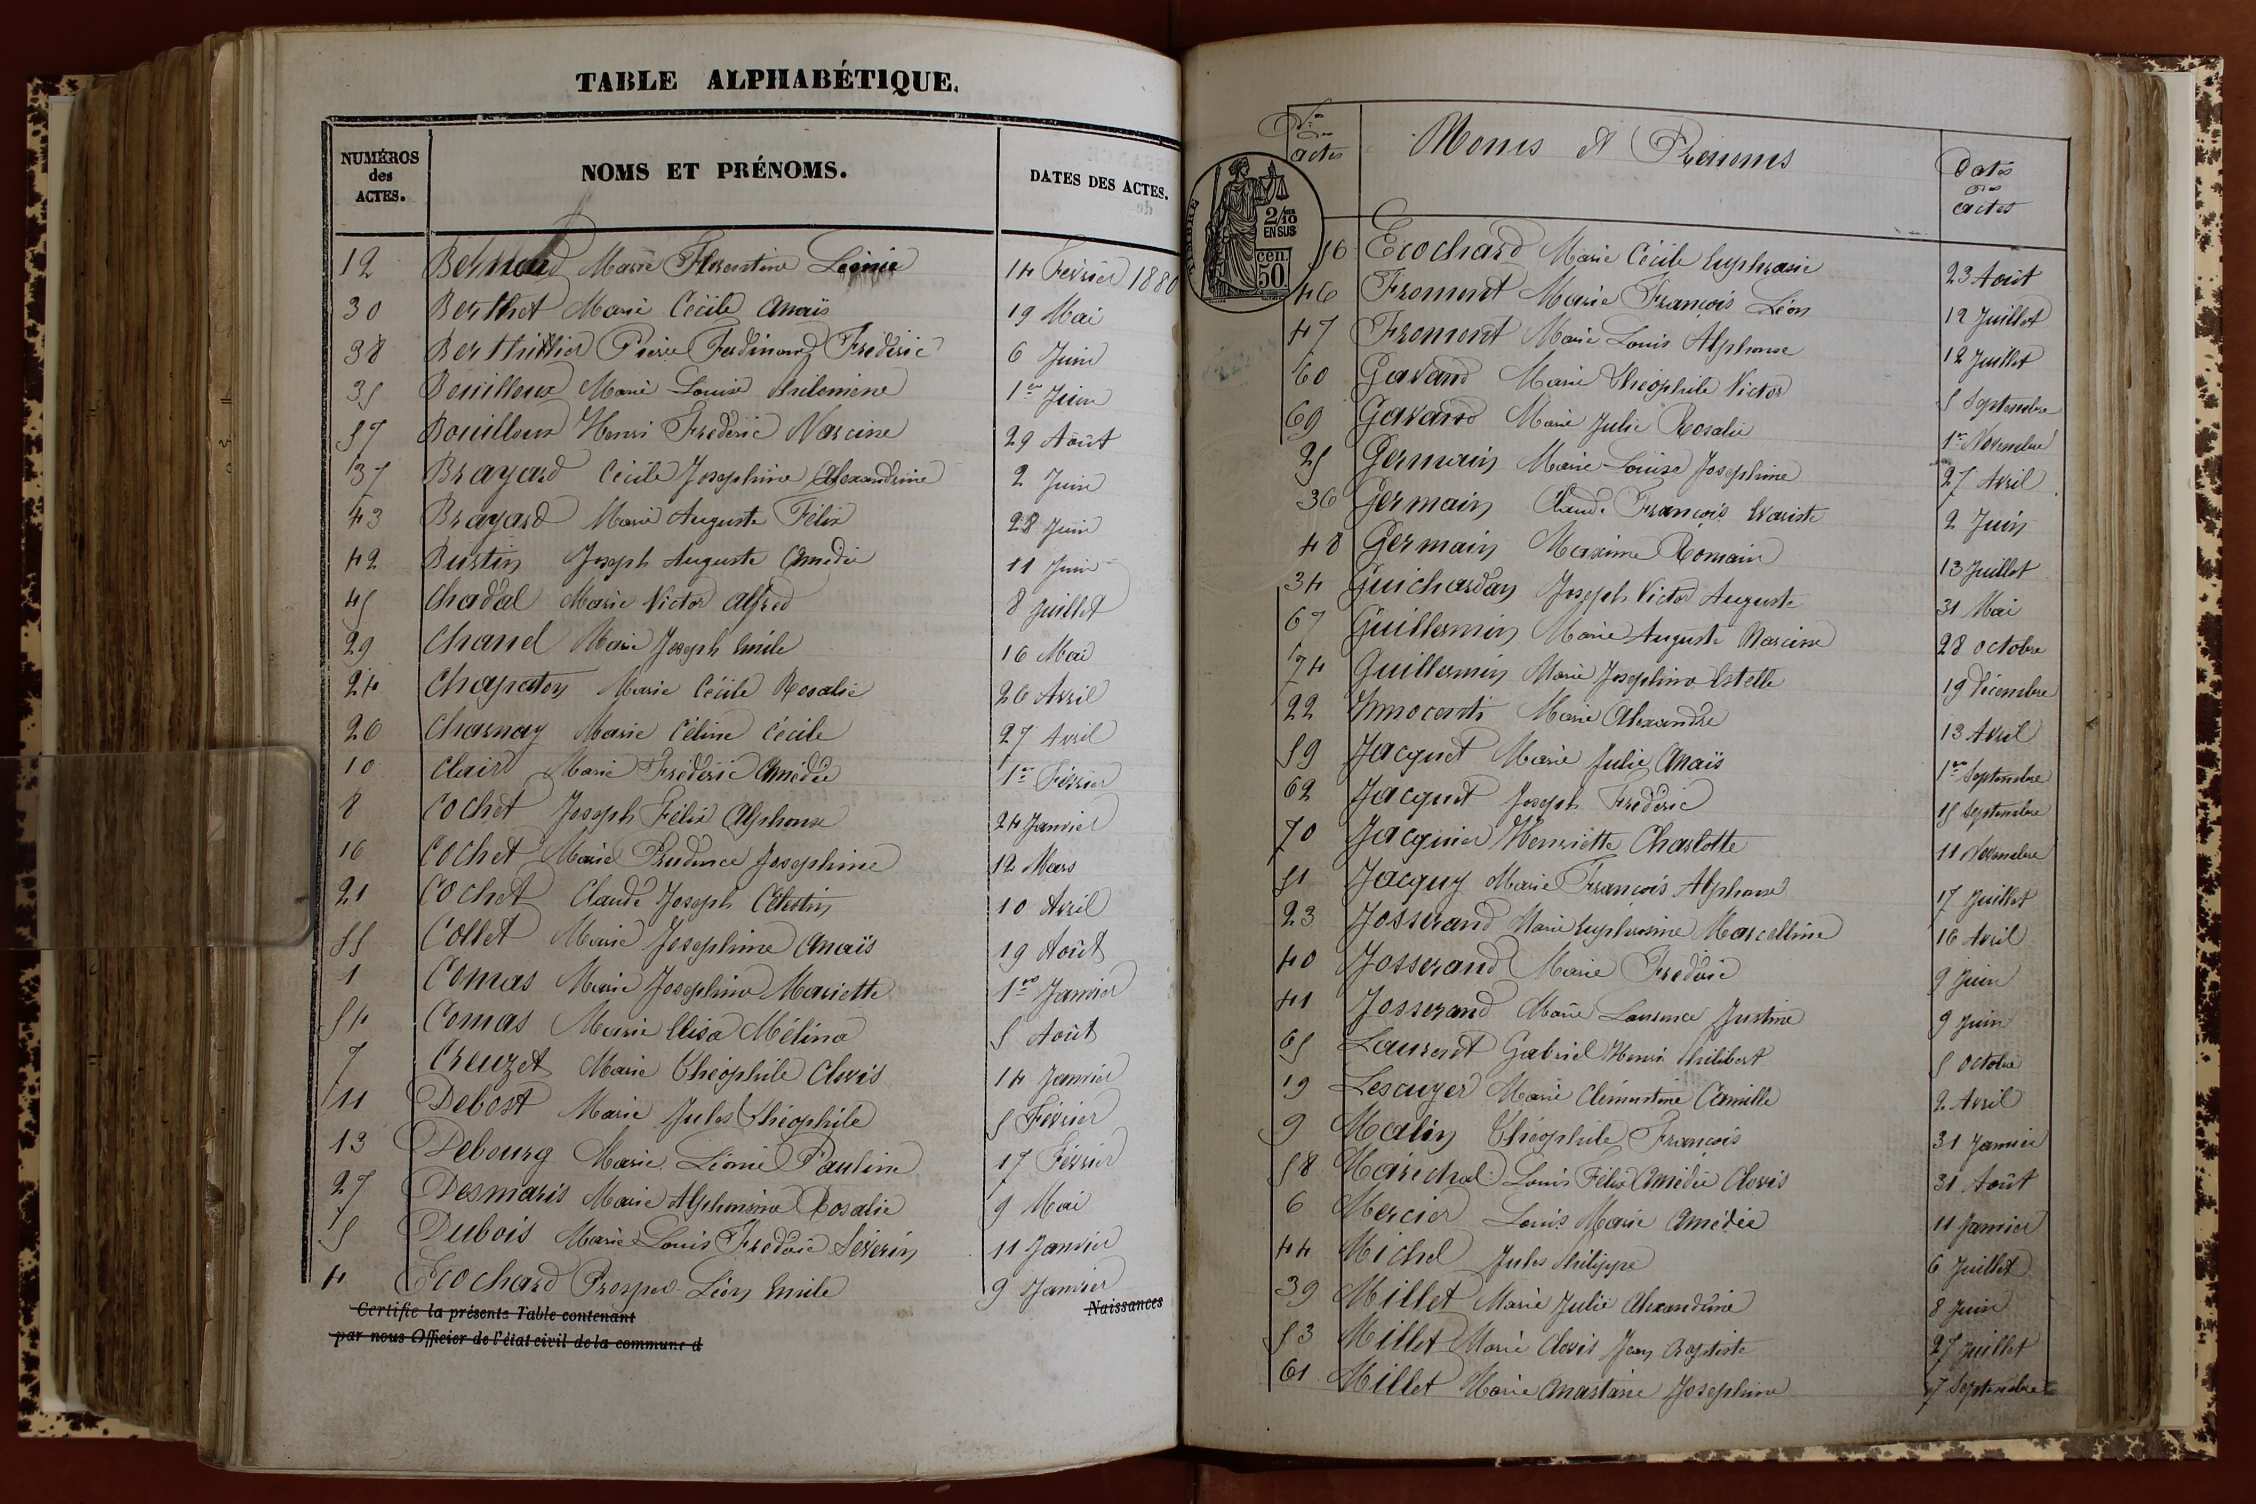 TABLE ALPHABÉTIQUE.
NUMÉROS des ACTES. NOMS ET PRÉNOMS. DATES DES ACTES.
12 Bernard Marie Florentine Léonie 14 Février 1880
30 Berthet Marie Cécile Anaïs 19 Mai
38 Berthillier Pierre Ferdinand Frédéric 6 Juin
35 Bouilloux Marie Louise Philomène 1er Juin
57 Bouilloux Henri Frédéric Narcisse 29 Août
37 Brayard Cécile Joséphine Alexandrine 2 Juin
43 Brayard Marie Auguste Félix 28 Juin
42 Bustin Joseph Auguste Amédée 11 Juin
45 Chadal Marie Victor Alfred 8 Juillet
29 Chanel Marie Joseph Emile 16 Mai
24 Chapaton Marie Cécile Rosalie 26 Avril
26 Charnay Marie Céline Cécile 27 Avril
10 Clair Marie Frédéric Amédée 1er Février
8 Cochet Joseph Félix Alphonse 24 Janvier
16 Cochet Marie Prudence Joséphine 12 Mars
21 Cochet Claude Joseph Célestin 10 Avril
55 Collet Marie Joséphine Anaïs 19 Août
1 Comas Marie Joséphine Mariette 1er Janvier
54 Comas Marie Elisa Mélina 5 Août
7 Creuzet Marie Théophile Clovis 14 Janvier
11 Debost Marie Jules Théophile 5 Février
13 Debourg Marie Léonie Pauline 17 Février
27 Desmaris Marie Alphonsine Rosalie 9 Mai
5 Dubois Marie Louis Frédéric Séverin 11 Janvier
4 Ecochard Prosper Léon Emile 9 Janvier
Certifie la présente Table contenant Naissances
par nous Officier de l'état civil de la commune d
Nos des actes Noms et Prénoms Dates des actes
TIMBRE
2/10 EN SUS
50 CEN.
56 Ecochard Marie Cécile Euphrasie 23 Août
46 Froment Marie François Léon 12 Juillet
47 Froment Marie Louis Alphonse 12 Juillet
60 Gavand Marie Théophile Victor 5 Septembre
69 Gavand Marie Julie Rosalie 1er Novembre
25 Germain Marie Louise Joséphine 27 Avril
36 Germain Claude François Evariste 2 Juin
48 Germain Maxime Romain 13 Juillet
34 Guichardan Joseph Victor Auguste 31 Mai
67 Guillermin Marie Auguste Narcisse 28 octobre
74 Guillermin Marie Joséphine Estelle 19 Décembre
22 Innocenti Marie Alexandre 13 Avril
59 Jacquet Marie Julie Anaïs 1er Septembre
62 Jacquet Joseph Frédéric 15 Septembre
70 Jacquier Henriette Charlotte 11 Novembre
51 Jacquy Marie François Alphonse 17 Juillet
23 Josserand Marie Euphrosine Marcelline 16 Avril
40 Josserand Marie Frédéric 9 Juin
41 Josserand Marie Laurence Justine 9 Juin
65 Laurent Gabriel Henri Philibert 5 octobre
19 Lescuyer Marie Clémentine Camille 2 Avril
9 Malin Théophile François 31 Janvier
58 Maréchal Louis Félix Amédée Clovis 31 Août
6 Mercier Louis Marie Amédée 11 Janvier
44 Michel Jules Philippe 6 Juillet
39 Millet Marie Julie Alexandrine 8 Juin
53 Millet Marie Clovis Jean Baptiste 27 Juillet
61 Millet Marie Anastasie Joséphine 7 Septembre